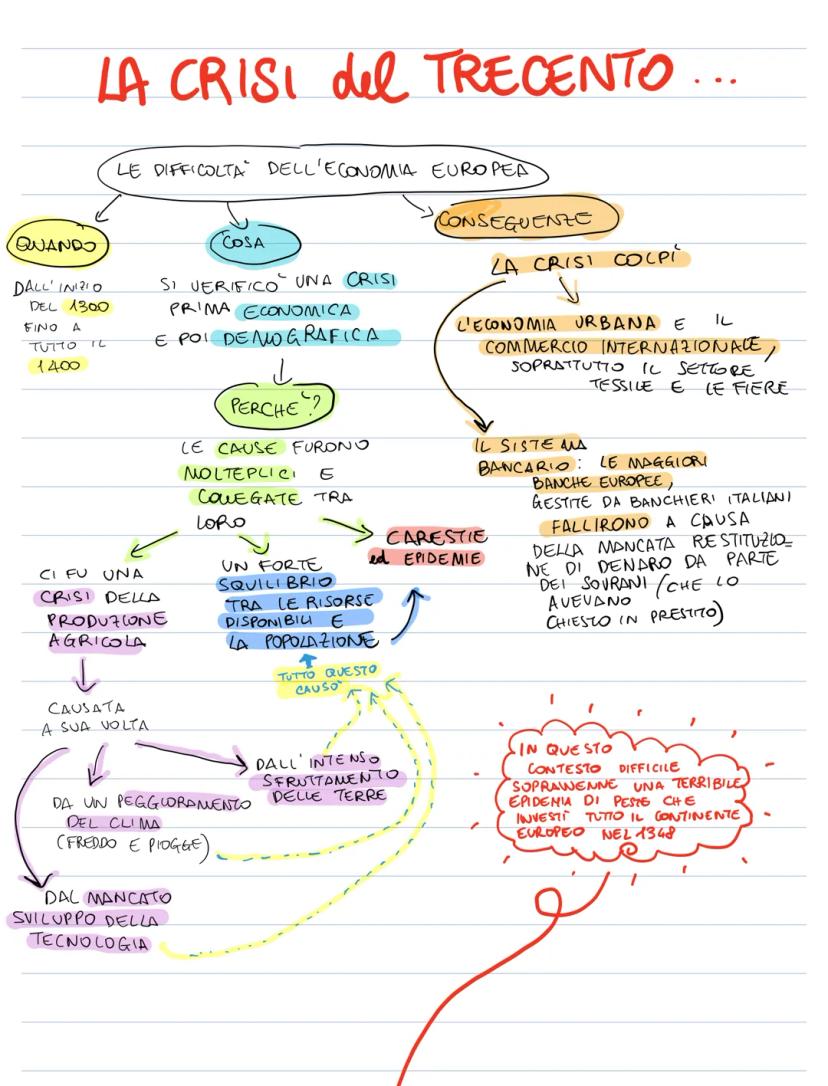 LA CRISI del TRECENTO...
LE DIFFICOLTÀ DELL'ECONOMIA EUROPEA
QUANDO
DALL'INIZIO
DEL 1300
FINO A
TUTTO IL
1400
COSA
SI VERIFICÒ UNA CRISI
PRIMA ECONOMICA
E POI DEMOGRAFICA
PERCHÈ?
LE CAUSE FURONO
MOLTEPLICI E
COLLEGATE TRA
LORO
CI FU UNA
CRISI DELLA
PRODUZIONE
AGRICOLA
CAUSATA
A SUA VOLTA
DALL'INTENSO
SFRUTTAMENTO
DELLE TERRE
DA UN PEGGIORAMENTO
DEL CLIMA
(FREDDO E PIOGGE)
DAL MANCATO
SVILUPPO DELLA
TECNOLOGIA
UN FORTE
SQUILIBRIO
TRA LE RISORSE
DISPONIBILI E
LA POPOLAZIONE
TUTTO QUESTO
CAUSÒ
CARESTIE
ed EPIDEMIE
CONSEGUENZE
LA CRISI COLPÌ
L'ECONOMIA URBANA E IL
COMMERCIO INTERNAZIONALE,
SOPRATTUTTO IL SETTORE
TESSILE E LE FIERE
IL SISTEMA
BANCARIO: LE MAGGIORI
BANCHE EUROPEE,
GESTITE DA BANCHIERI ITALIANI
FALLIRONO A CAUSA
DELLA MANCATA RESTITUZIO-
NE DI DENARO DA PARTE
DEI SOVRANI (CHE LO
AVEVANO
CHIESTO IN PRESTITO)
IN QUESTO
CONTESTO DIFFICILE
SOPRAVVENNE UNA TERRIBILE
EPIDEMIA DI PESTE CHE
INVESTÌ TUTTO IL CONTINENTE
EUROPEO NEL 1348